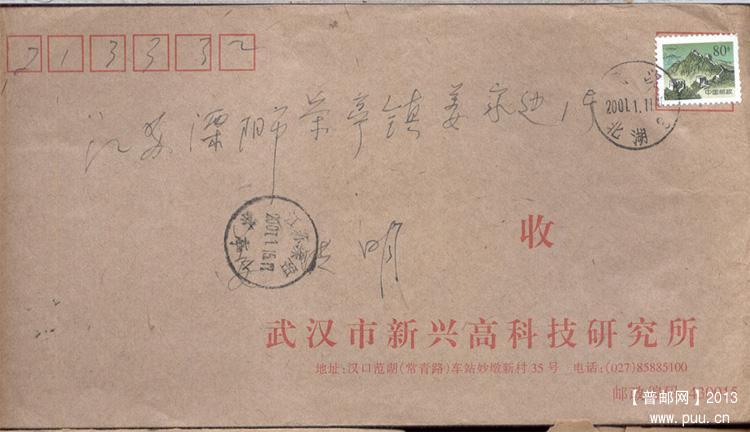 213332
80分
中国邮政
2001.1.11
北湖
江苏溧阳市茶亭镇姜家边15
2001.1.15.17
江苏溧阳
明
收
武汉市新兴高科技研究所
地址:汉口范湖(常青路)车站妙墩新村 35 号 电话:(027)85885100
邮政编码 430015
【普邮网】2013
www.puu.cn